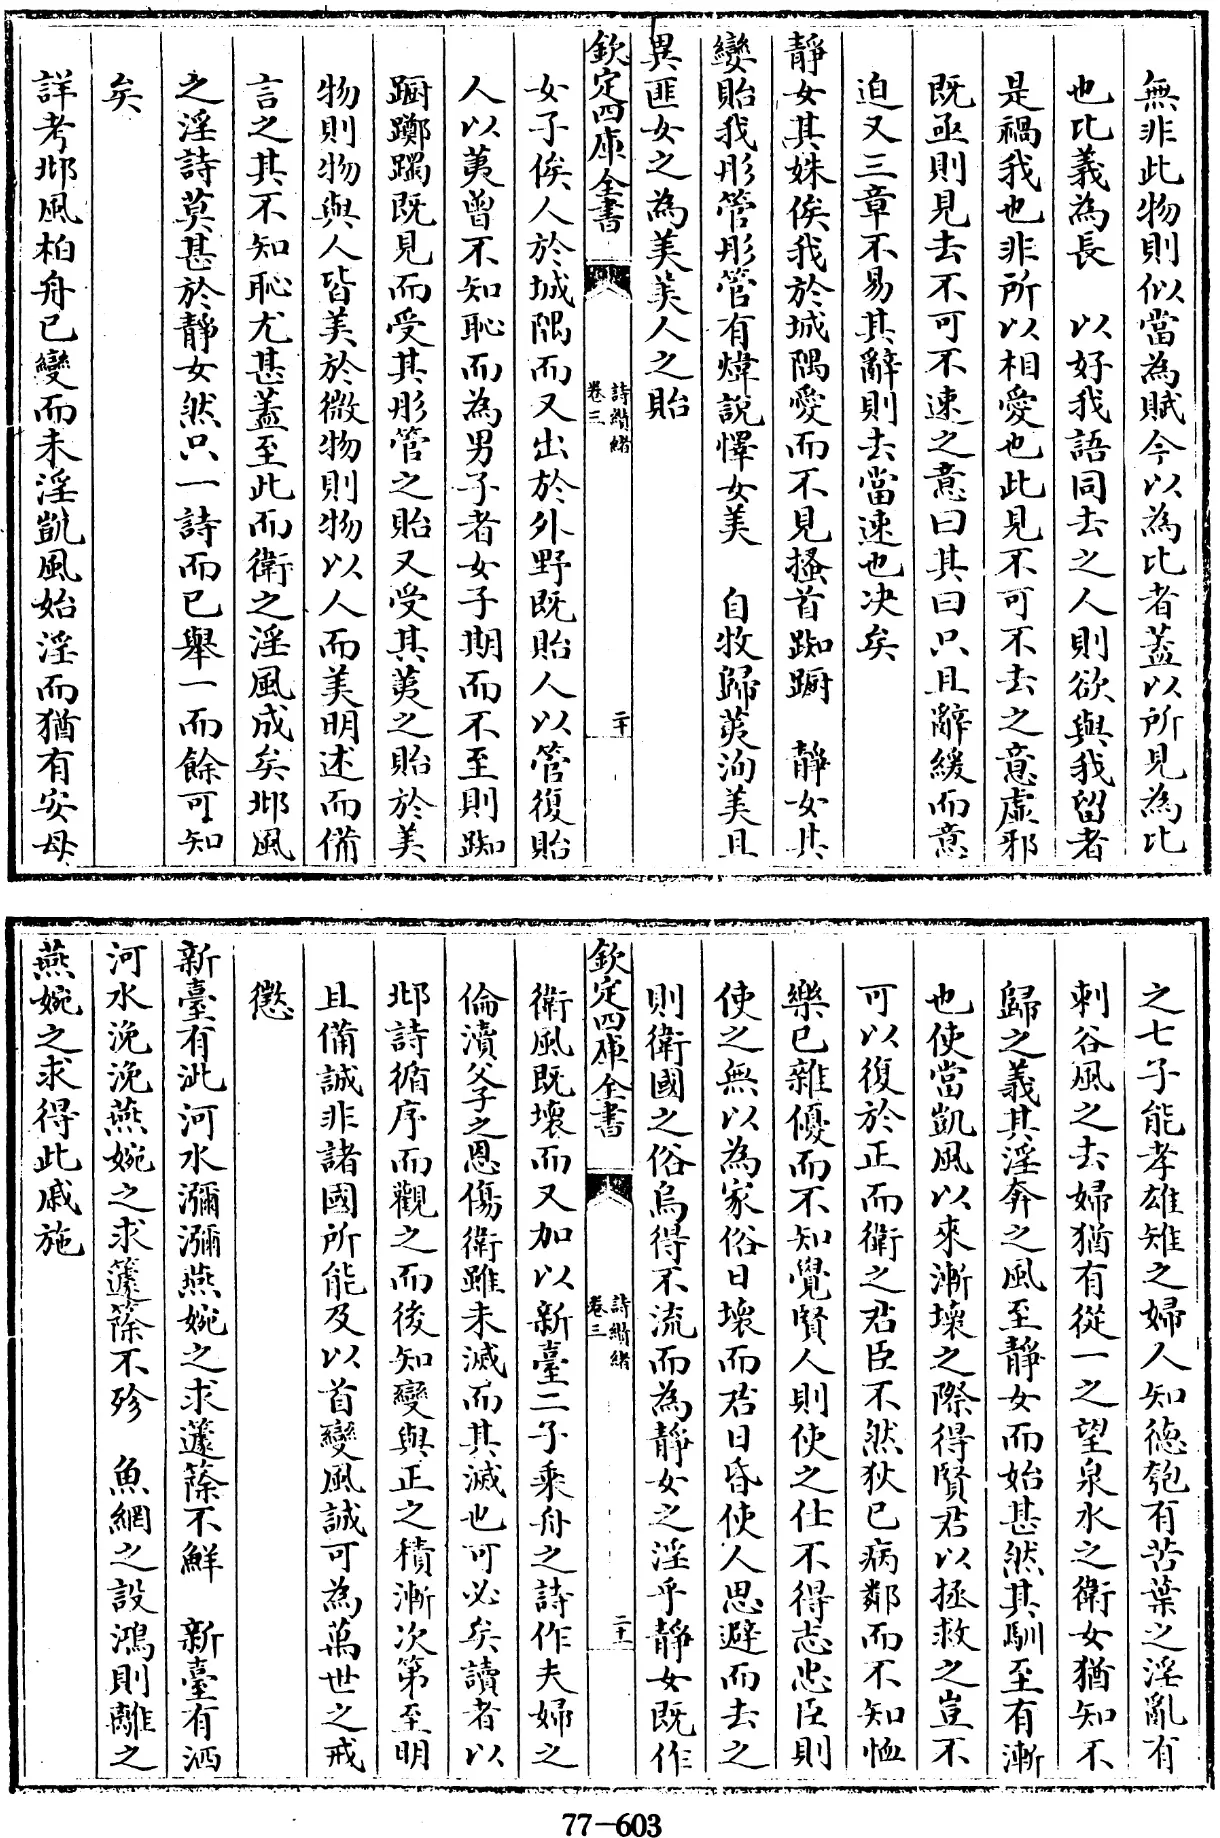 無非此物則似當為賦今以為比者蓋以所見為比
也比義為長　以好我語同去之人則欲與我留者
是禍我也非所以相愛也此見不可不去之意虛邪
既亟則見去不可不速之意曰其曰只且辭緩而意
迫又三章不易其辭則去當速也決矣
靜女其姝俟我於城隅愛而不見搔首踟躕　靜女其
孌貽我彤管彤管有煒說懌女美　自牧歸荑洵美且
異匪女之為美美人之貽
欽定四庫全書
詩纘緒
卷三
二十
女子俟人於城隅而又出於外野既貽人以管復貽
人以荑曾不知恥而為男子者女子期而不至則踟
躕躑躅既見而受其彤管之貽又受其荑之貽於美
物則物與人皆美於微物則物以人而美明述而備
言之其不知恥尤甚蓋至此而衛之淫風成矣邶風
之淫詩莫甚於靜女然只一詩而已舉一而餘可知
矣
詳考邶風柏舟已變而未淫凱風始淫而猶有安母
之七子能孝雄雉之婦人知德匏有苦葉之淫亂有
刺谷風之去婦猶有從一之望泉水之衛女猶知不
歸之義其淫奔之風至靜女而始甚然其馴至有漸
也使當凱風以來漸壞之際得賢君以拯救之豈不
可以復於正而衛之君臣不然狄已病鄰而不知恤
樂已雜優而不知覺賢人則使之仕不得志忠臣則
使之無以為家俗日壞而君日昏使人思避而去之
則衛國之俗烏得不流而為靜女之淫乎靜女既作
欽定四庫全書
詩纘緒
卷三
二十一
衛風既壞而又加以新臺二子乘舟之詩作夫婦之
倫瀆父子之恩傷衛雖未滅而其滅也可必矣讀者以
邶詩循序而觀之而後知變與正之積漸次第至明
且備誠非諸國所能及以首變風誠可為萬世之戒
懲
新臺有泚河水瀰瀰燕婉之求籧篨不鮮　新臺有洒
河水浼浼燕婉之求籧篨不殄　魚網之設鴻則離之
燕婉之求得此戚施
77-603